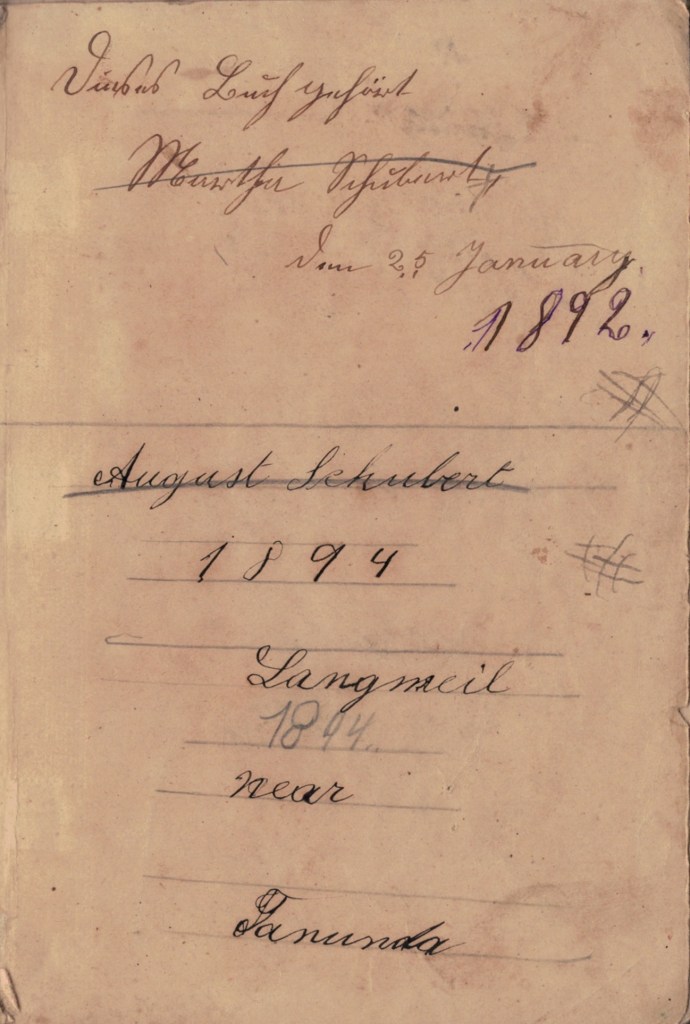 Dieses Buch gehört
Martha Schubert
den 25 January.
1892.
August Schubert
1894
Langmeil
1894.
near
Tanunda